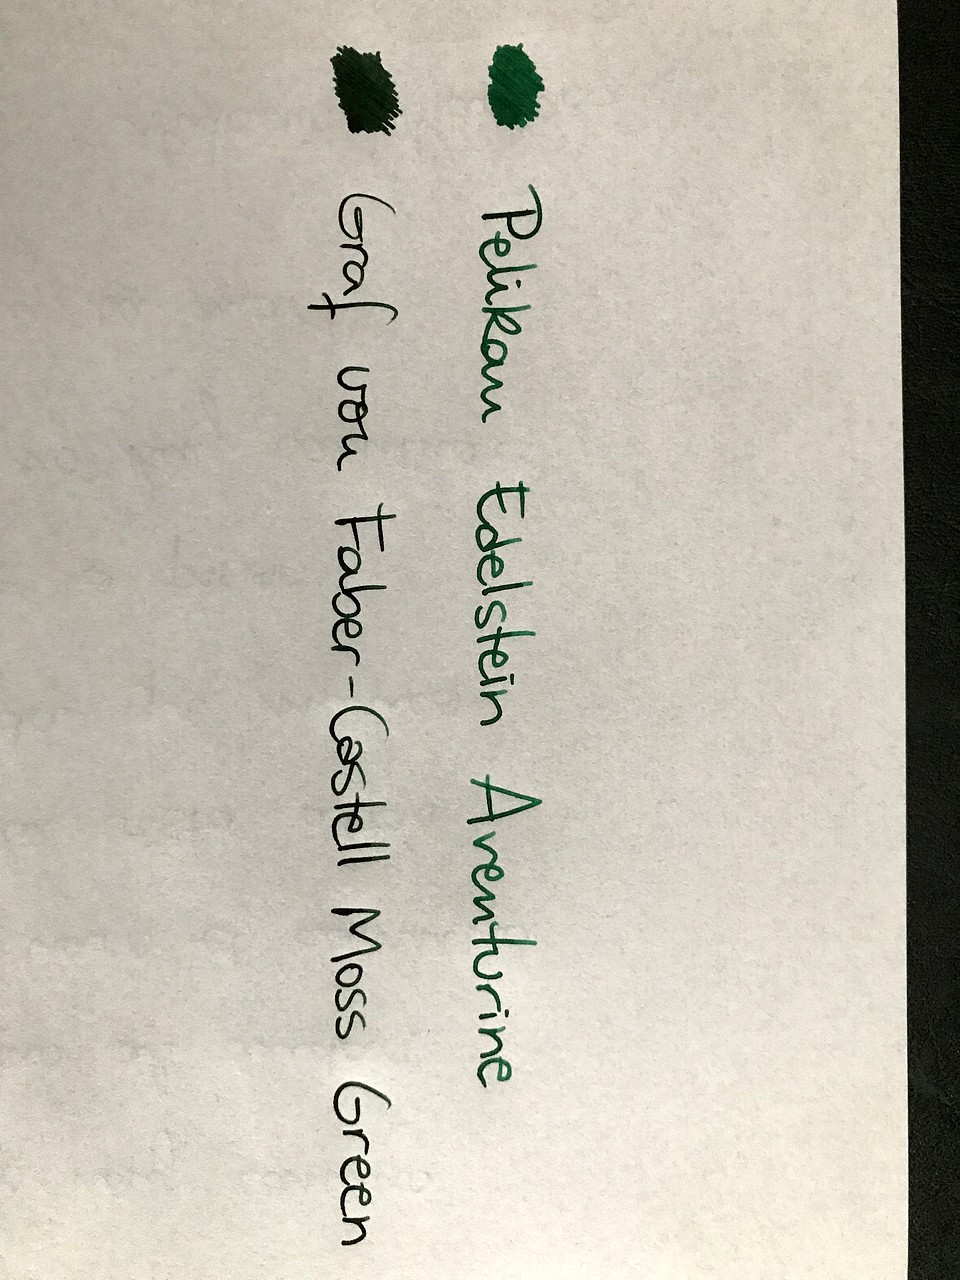 Pelikan Edelstein Aventurine
Graf von Faber-Castell Moss Green